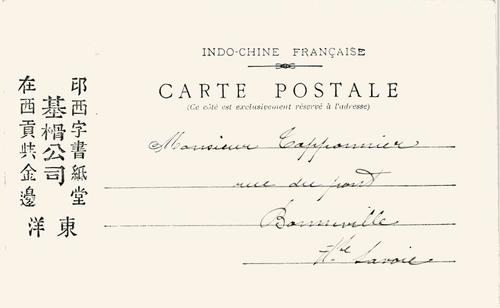 INDO-CHINE FRANÇAISE
CARTE POSTALE
(Ce côté est exclusivement réservé à l'adresse)
Monsieur Tapponnier
rue du pont
Bonneville
Hte Savoie
印西字書紙堂
基楈公司
在西貢共金邊
東洋